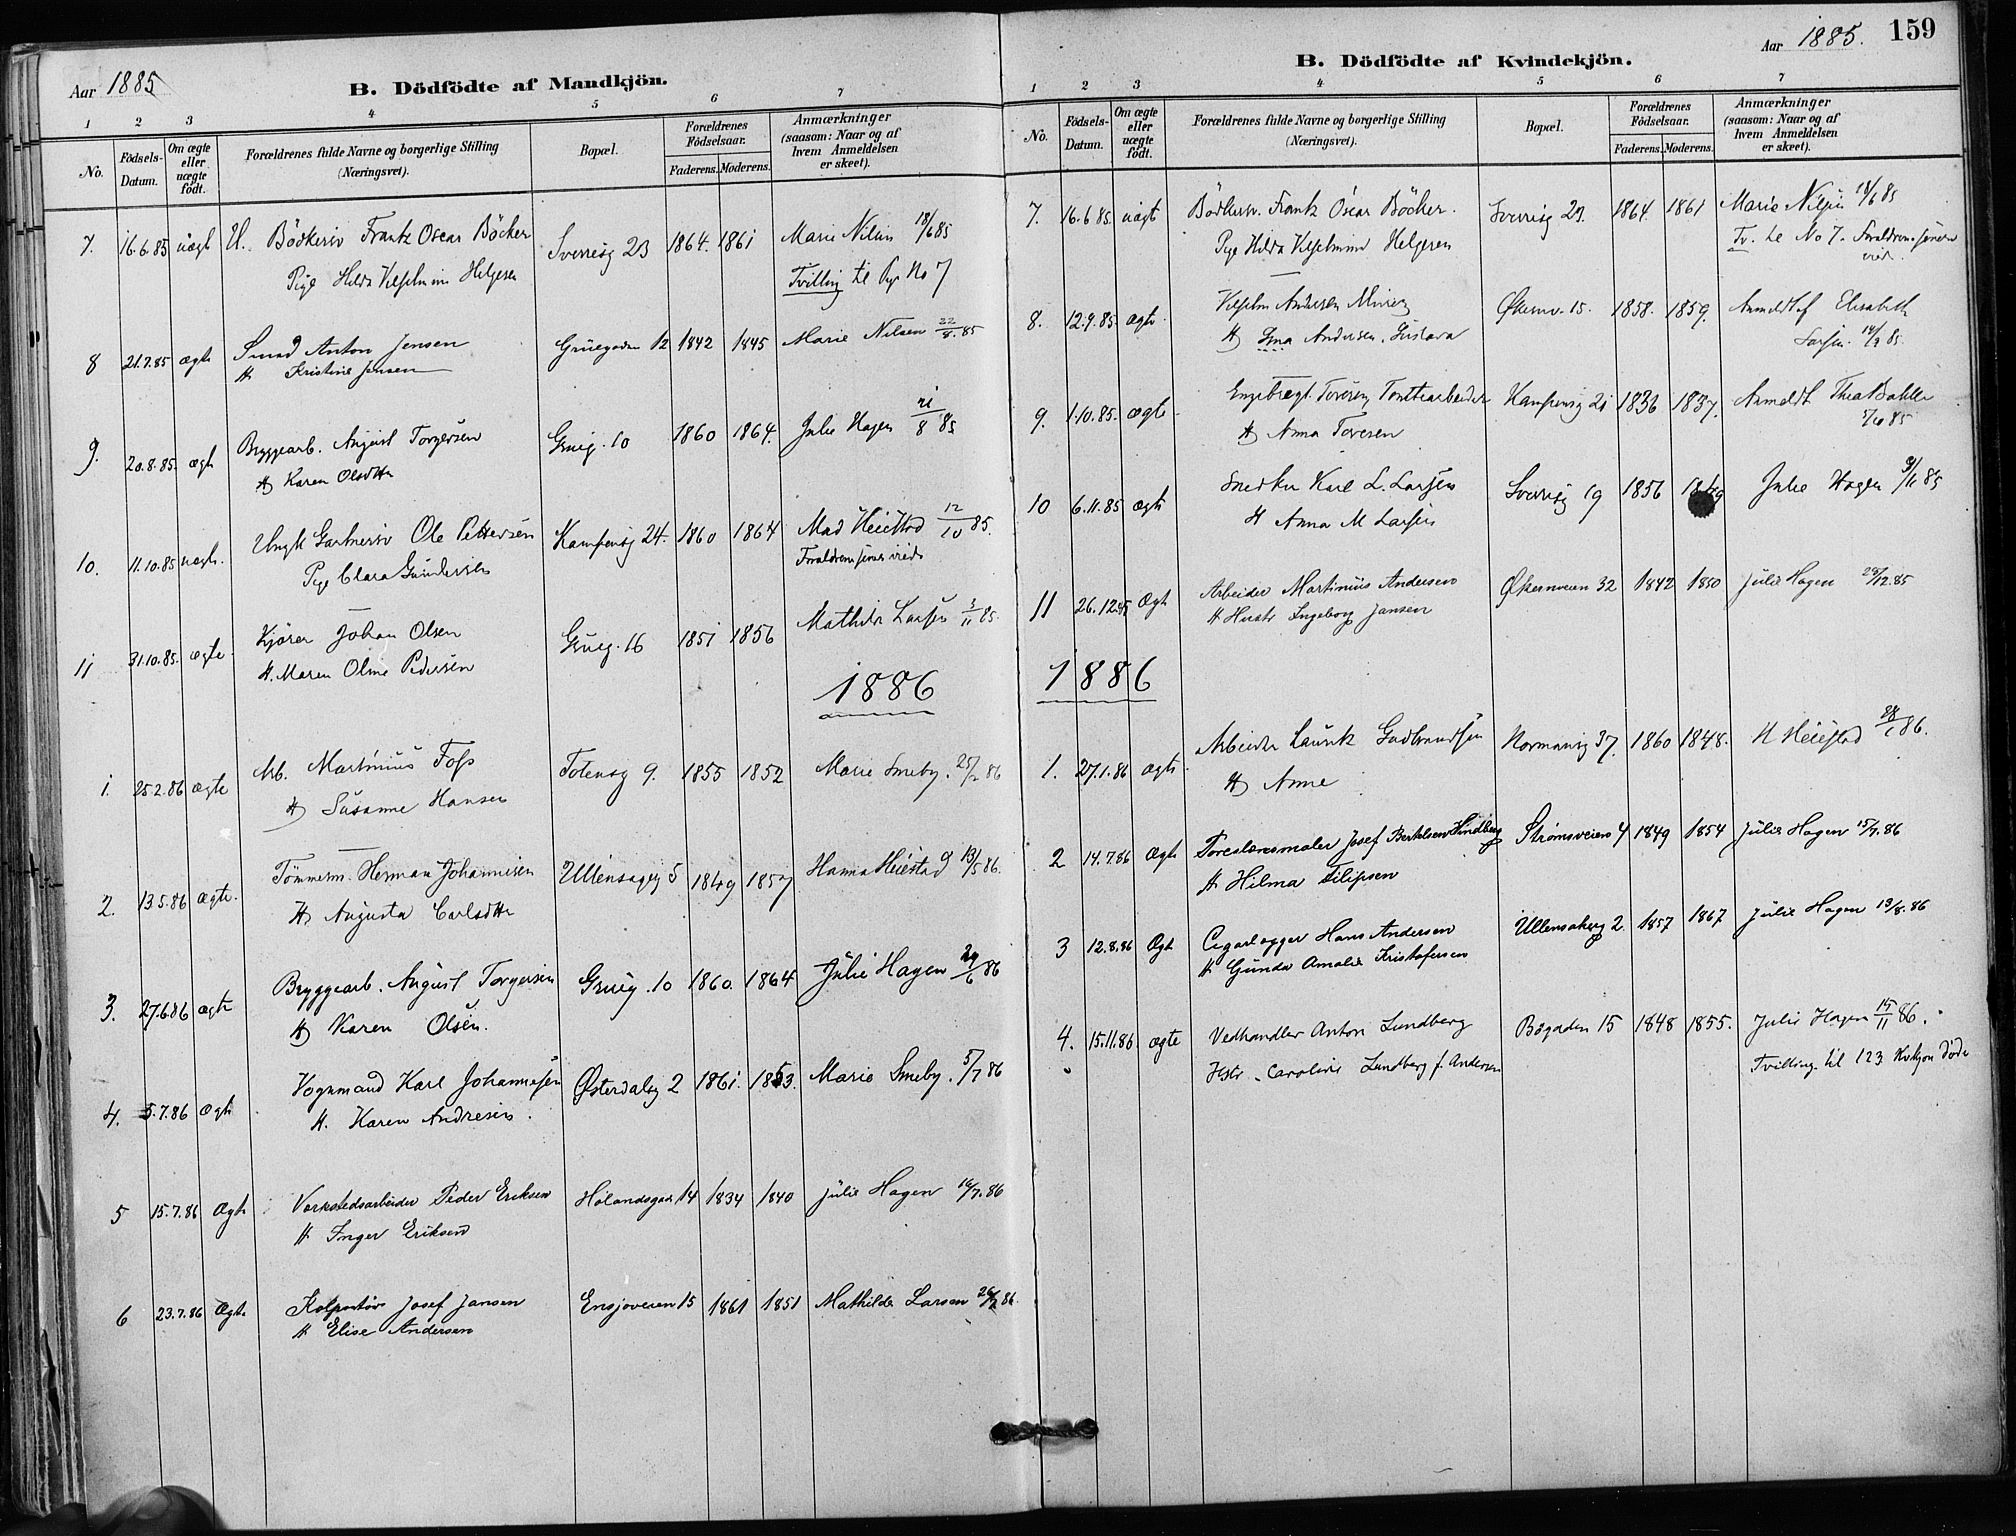 Aar 1885
B. Dödfödte af Mandkjön.
1 2 3 4 5 6 7
No.
Födsels-Datum.
Om ægte eller uægte födt.
Forældrenes fulde Navne og borgerlige Stilling
(Næringsvei).
Bopæl.
Forældrenes Födselsaar.
Faderens. Moderens.
Anmærkninger
(saasom: Naar og af
hvem Anmeldelsen
er skeet).
7. 16.6.85 uægt U. Bödkersv Frantz Oscar Böcker Sverresg 23 1864. 1861 Marie Nilsen 18/6 85
Pige Hilda Vilhelmine Helgesen Tvilling til Pige No 7
8 21.7.85 ægte Smed Anton Jensen Gruegaden 12 1842 1845 Marie Nilsen 22/8. 85
H Kristine Jensen
9. 20.8.85. ægte Bryggearb. August Torgersen Grueg. 10 1860 1864. Julie Hagen 21/8 85
H Karen Olsdtr
10. 11.10.85 uægte. Ungk Gartnersv Ole Pettersen Kampensg 24. 1860 1864 Mad Heiestad 12/10 85.
Pige Clara Gundersen Forældrene senere viede
11 31.10.85. ægte Kjörer Johan Olsen Grueg. 16 1851 1856 Mathilde Larsen 3/11 85.
H. Maren Oline Pedersen
1886
1. 25.2.86 ægte Arb. Martinius Foss Totensg 9. 1855 1852 Marie Smeby. 25/2 86
H Susanne Hansen
2. 13.5.86 ægte. Tömmerm. Herman Johannisen Ullensagsg 5 1849 1857 Hanna Heiestad 13/5 86.
H Augusta Carlsdtr
3. 27.6.86 ægte Bryggearb. August Torgersen Grueg. 10 1860. 1864 Julie Hagen 29/6 86
H Karen Olsen.
4. 5.7.86 Ægte Vognmand Karl Johannesen Østerdalsg 2 1861. 1853. Marie Smeby. 5/7 86
H. Karen Andresen.
5 15.7.86 Ægte Værkstedsarbeider Peder Eriksen Hölandsgade 14 1834 1840 Julie Hagen 16/7.86
H Inger Eriksen
6 23.7.86 Ægte Kolportör Josef Jansen Ensjoveien 15 1861 1851 Mathilde Larsen 26/7 86.
H Elise Andersen
Aar 1885. 159
B. Dödfödte af Kvindekjön.
1 2 3 4 5 6 7
No.
Födsels-Datum.
Om ægte eller uægte födt.
Forældrenes fulde Navne og borgerlige Stilling
(Næringsvei).
Bopæl.
Forældrenes Födselsaar.
Faderens. Moderens.
Anmærkninger
(saasom: Naar og af
hvem Anmeldelsen
er skeet).
7. 16.6.85. uægt Bödkersv. Frantz Oscar Böcker. Sverresg 23. 1864. 1861 Marie Nilsen 18/6 85
Pige Hilda Vilhelmine Helgesen Tv. til No 7. Forældrene senere
viede.
8. 12.9.85. ægte Vilhelm Andersen Murer Økernv. 15. 1858. 1859. Anmeldt af Elisabeth
H Lina Andersen, Gustava Larsen. 14/9 85.
9. 1.10.85. ægte Engebregt Toresen Tomtearbeider Kampensg 21 1836 1837. Anmeldt Thea Bakke
H Anna Toresen 5/10 85
10 6.11.85 ægte Snedker Karl L. Larsen Sverresg 19 1856 Julie Hagen 9/11 85
H Anna M Larsen
11 26.12.85 Ægte Arbeider Martinius Andersen Økernveien 32 1842 1850 Julie Hagen 28/12.85
H Hustr Ingeborg Jansen
1886
1. 27.1.86 ægte Arbeider Lauritz Gudbrandsen Normansg 37. 1860 1848. H Heiestad 28/1 86.
H Anne
2 14.7.86 Ægte Porcelænsmaler Josef Bertelsen Lindberg Strömsveien 4 1849 1854 Julie Hagen 15/7.86
H Hilma Filipsen
3 12.8.86 Ægte Cigarlægger Hans Andersen Ullensakerg 2. 1857 1867 Julie Hagen 13/8.86
H Gunda Amalie Kristofersen
4. 15.11.86. ægte Vedhandler Anton Lundberg Bögaden 15 1848 1855. Julie Hagen 15/11 86.
Hstr. Caroline Lundberg f. Andersen Tvilling til 123 Kvkjön döde